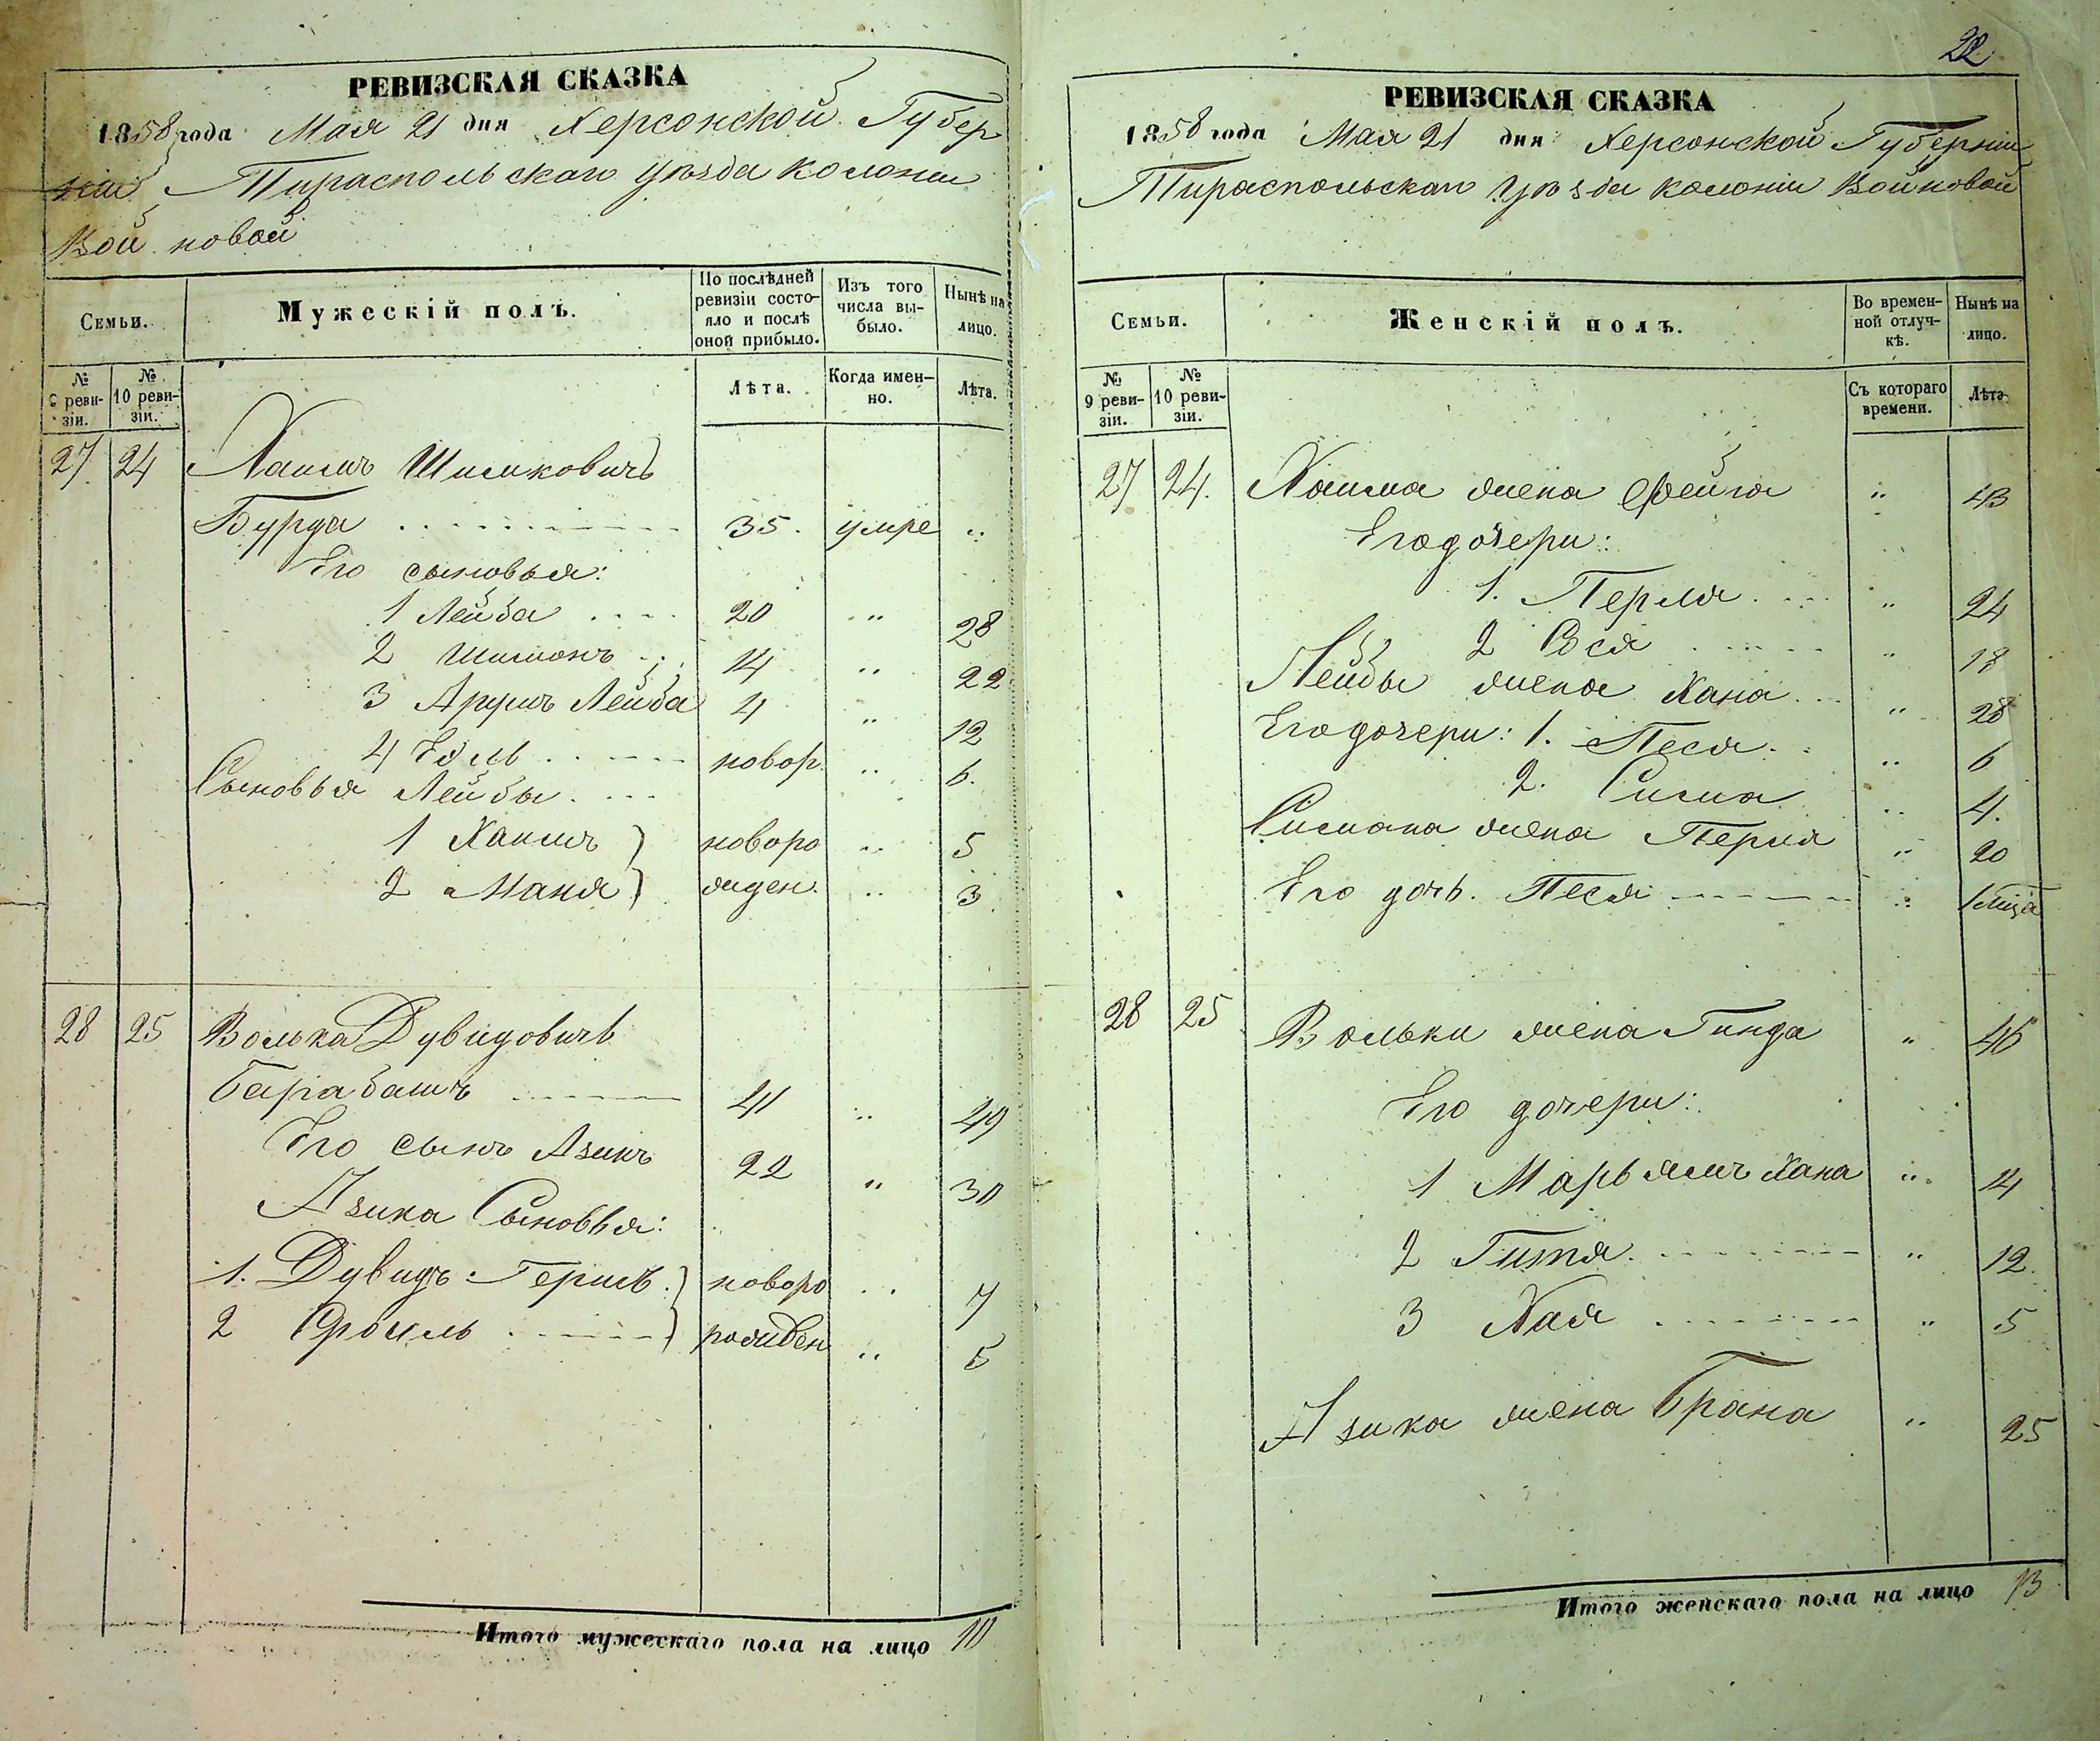 РЕВИЗСКАЯ СКАЗКА
1858 года Мая 21 дня Херсонской Губер
ніи Тираспольскаго уѣзда колоніи
Войновой
Семьи. Мужескій полъ. По послѣдней ревизіи состояло и послѣ оной прибыло. Изъ того числа выбыло. Нынѣ на лицо.
№ 9 ревизіи. № 10 ревизіи. Лѣта. Когда именно. Лѣта.
27 24 Хаимъ Шимковичъ
Бурда 35. умре „
Его сыновья:
1 Лейба 20 „ 28
2 Шимонъ 14 „ 22
3 Лейба 4 „ 12
4 новор. „ 6.
Сыновья Лейбы
1 Хаимъ новоро „ 5
2 Маня жден. „ 3
28 25 Волька Дувидовичъ
Барабашъ 41 „ 49
Его сынъ Азикъ 22 „ 30
Азика Сыновья:
1. Дувидъ Гершъ новоро „ 7
2 Фроимъ рожден „ 5
Итого мужескаго пола на лицо 10
22
РЕВИЗСКАЯ СКАЗКА
1858 года Мая 21 дня Херсонской Губерніи
Тираспольскаго уѣзда колоніи Войновой
Семьи. Женскій полъ. Во временной отлучкѣ. Нынѣ на лицо.
№ 9 ревизіи. № 10 ревизіи. Съ котораго времени. Лѣта
27 24. Хаима жена Фейга „ 43
Его дочери:
1. Перля „ 24
2 Рося „ 18
Лейбы жена Хана „ 28
Его дочери: 1. Песя „ 6
2. Сима „ 4.
Симона жена Перля „ 20
Его дочь. Песя „ 1 мѣца
28 25 Вольки жена Гинда „ 46
Его дочери:
1 Марьямъ Хана „ 14
2 Гитя „ 12.
3 Хая „ 5
Азика жена Брана „ 25
Итого женскаго пола на лицо 13